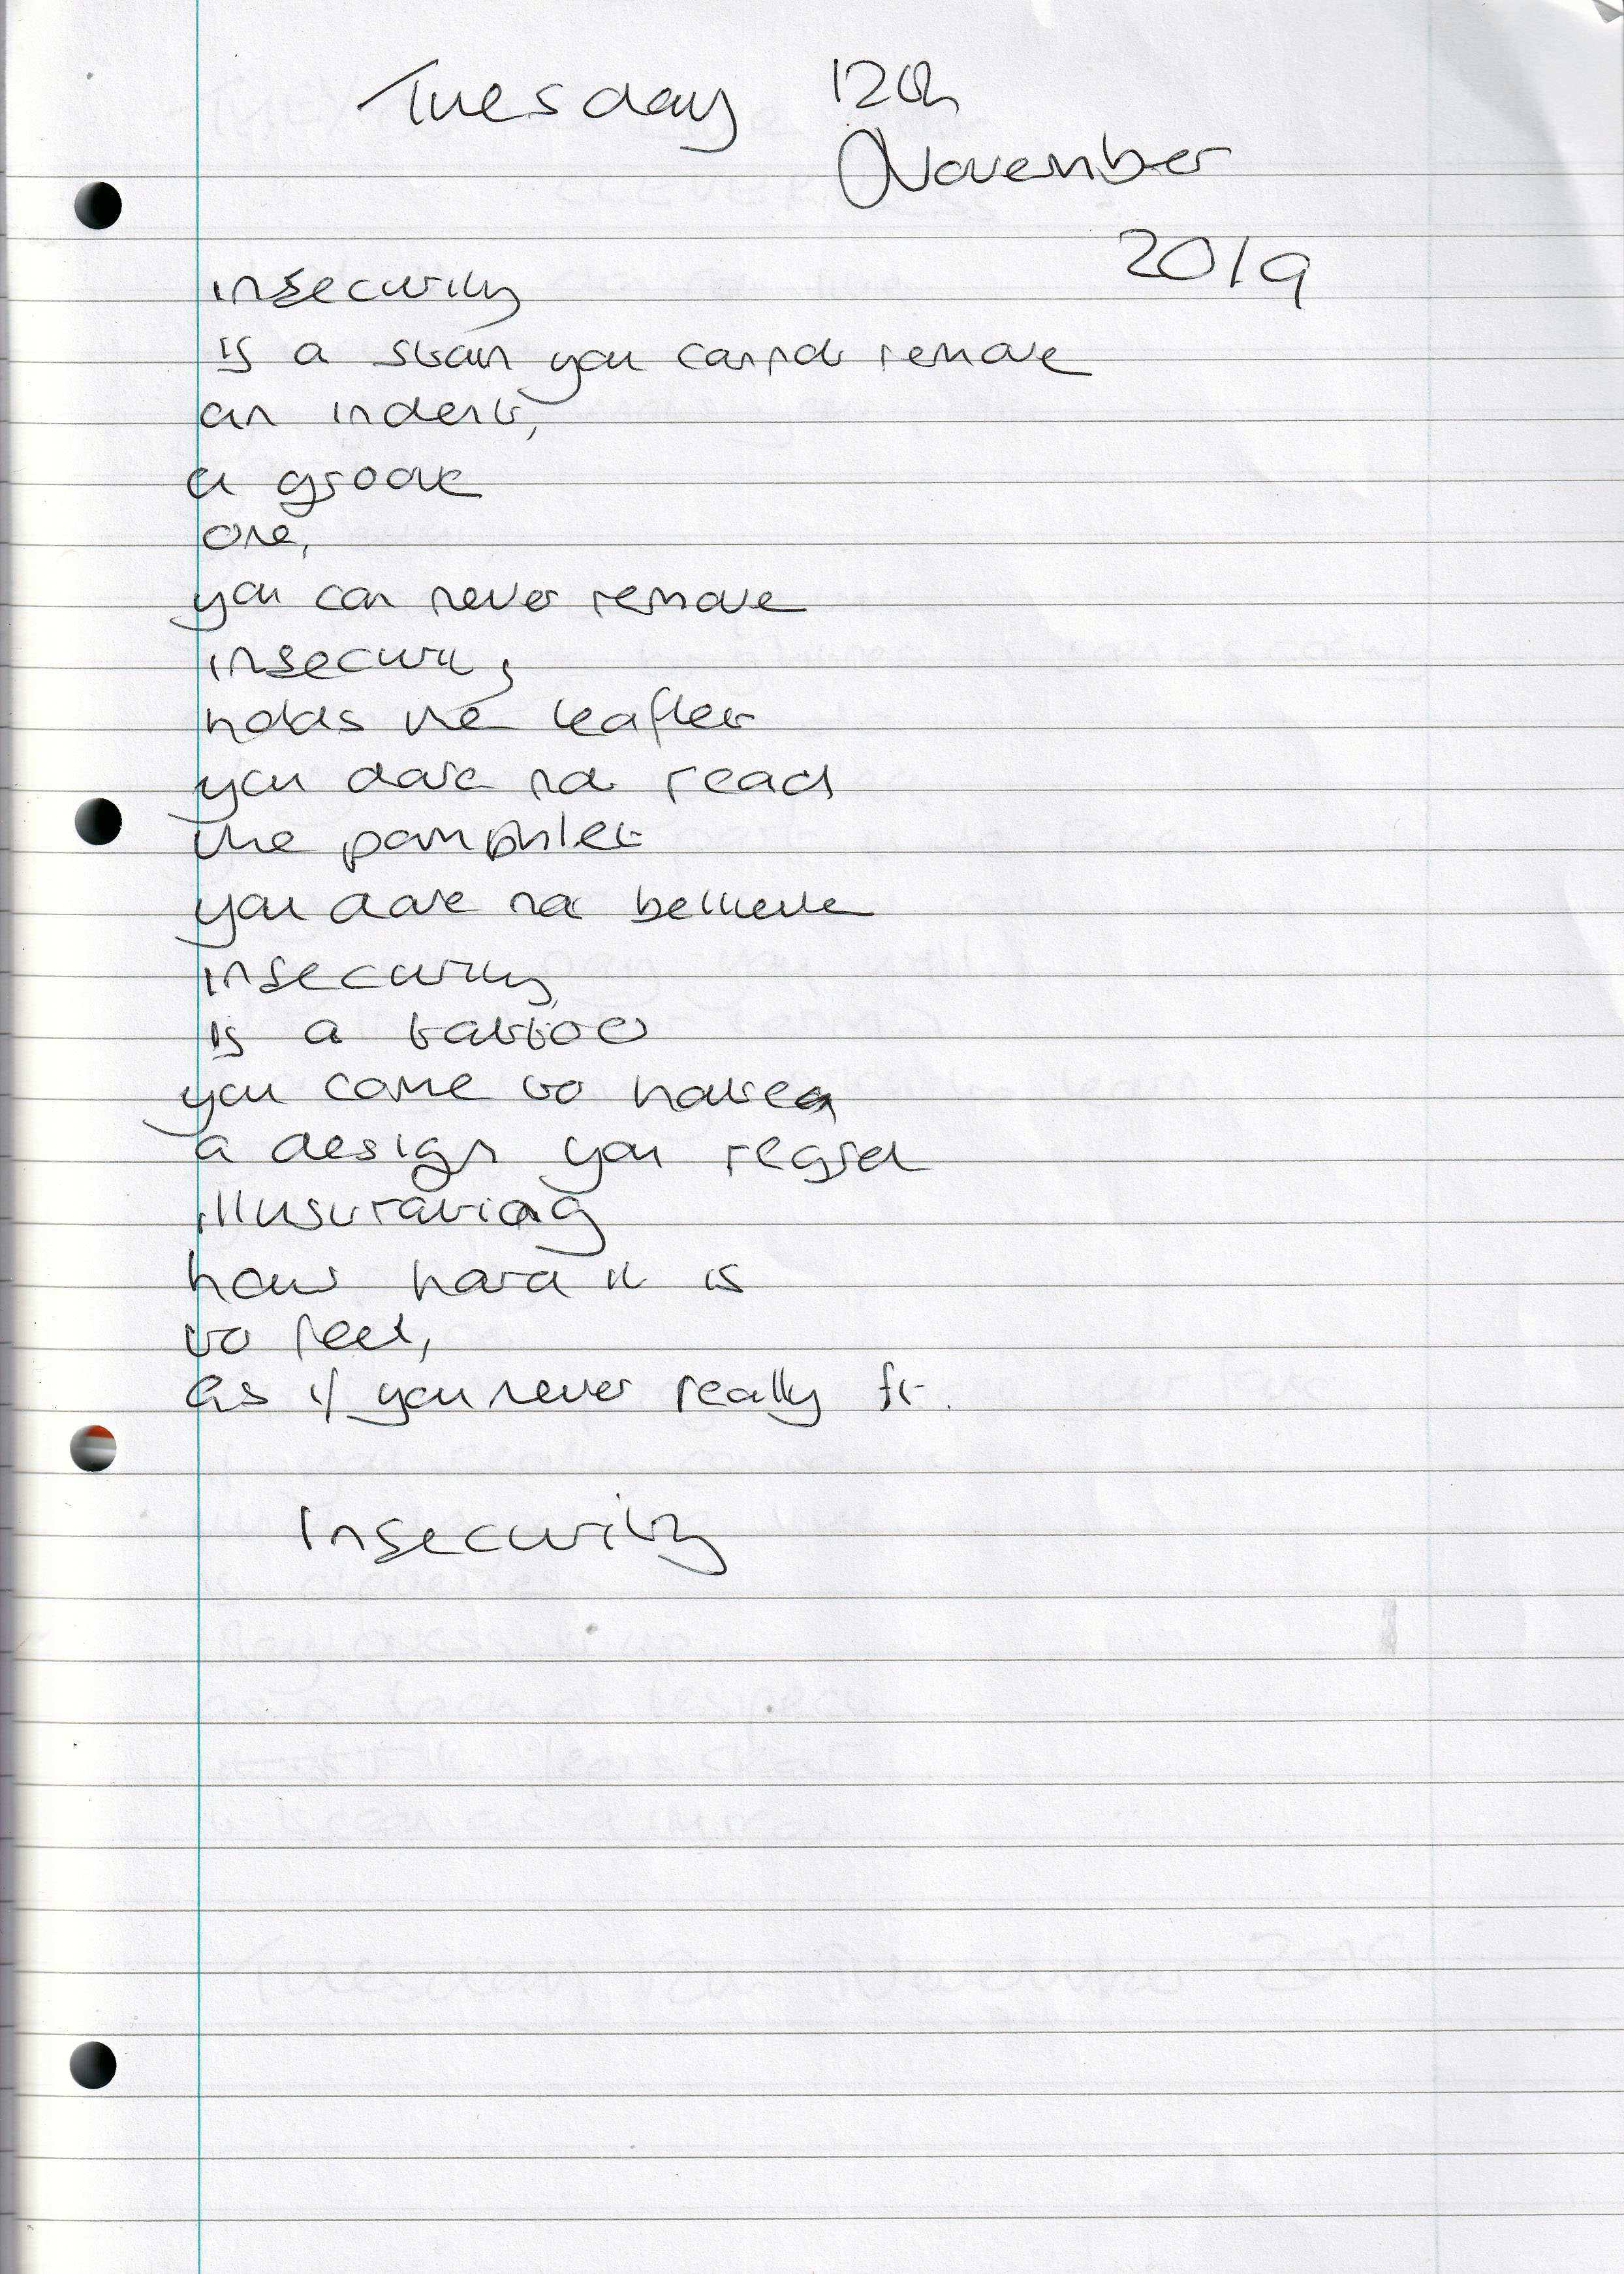 Tuesday 12th
November
2019
insecurity
is a stain you cannot remove
an indent,
a groove
one,
you can never remove
insecurity
holds the leaflet
you dare not read
the pamphlet
you dare not believe
insecurity
is a tattoo
you come to hate
a design you regret
illustrating
how hard it is
to feel,
as if you never really fit.
Insecurity